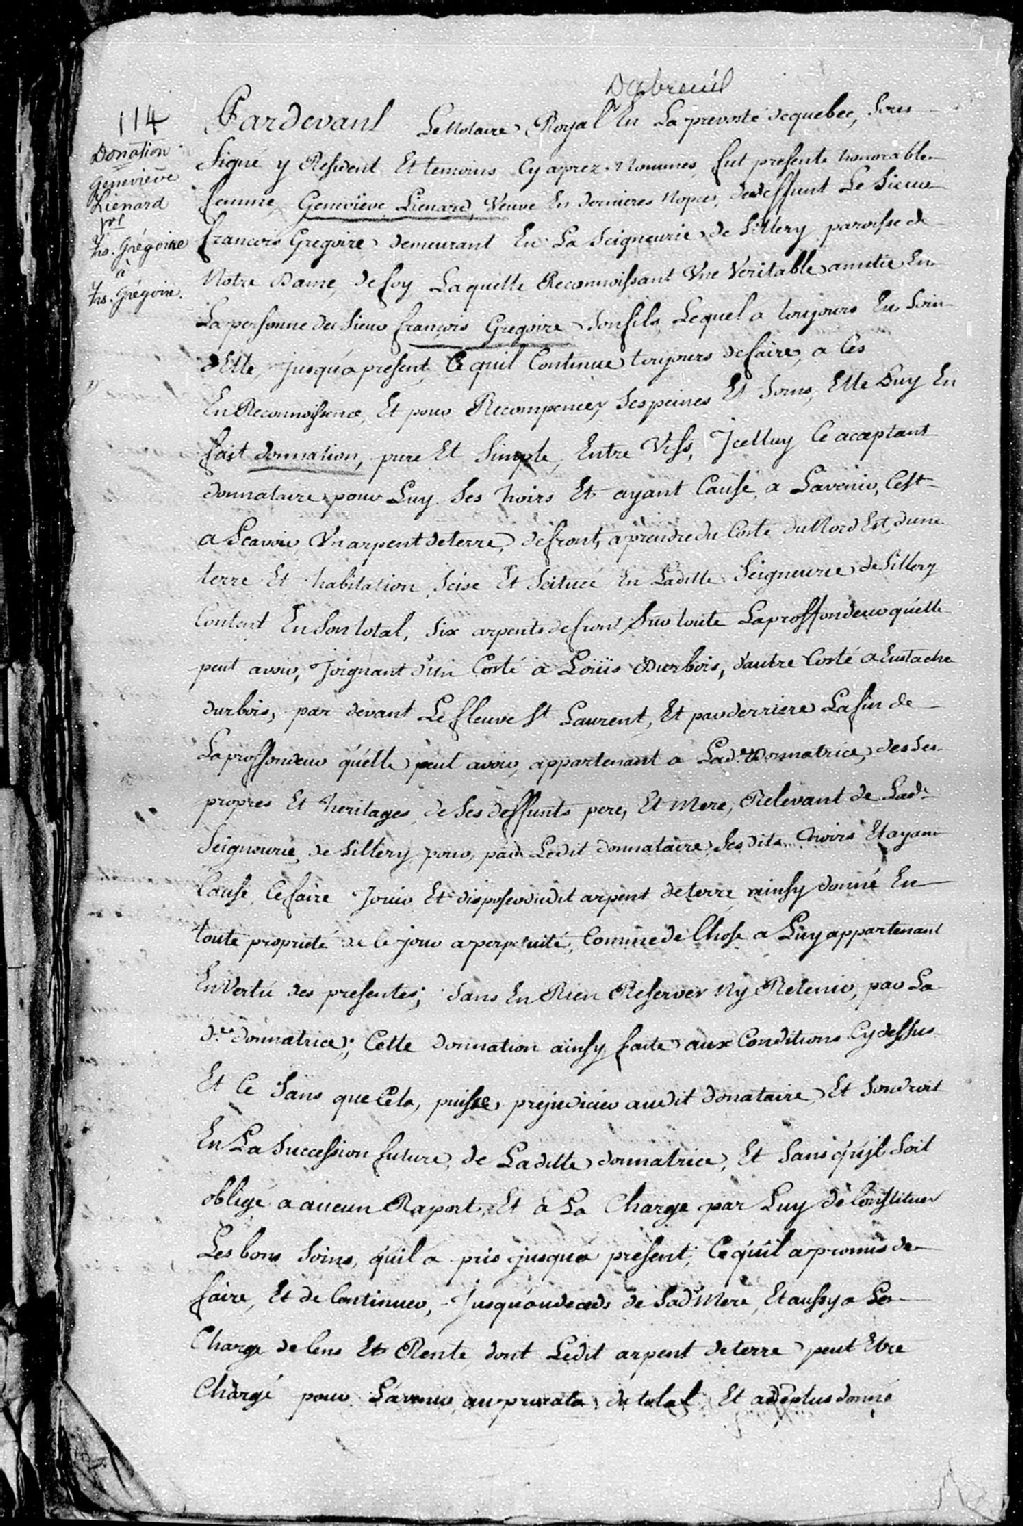 Dubreuil
114
Donation
Geneviève
Liénard
Vve
frs. Grégoire
à
frs. Grégoire.
Pardevant Le Notaire Royal En La prevosté de quebec, sous
Signé y Resident Et temoins Cy aprez Nommés fut presente honorable
femme Genevieve Lienard, Veuve En dernieres Nopces, de deffunt Le Sieur
francois Gregoire demeurant En La Seigneurie de Sillery paroisse de
Notre Dame de foy Laquelle Reconnoissant Une Veritable amitié En
La personne du Sieur francois Gregoire son fils Lequel a toujours Eu Soin
d'Elle, jusqu'a present, Ce quil Continue toujours de faire, a Ces
En Reconnoissance, Et pour Recompencer Ses peines Et Soins, Elle Luy En
fait donnation, pure Et Simple, Entre Vifs, Jcelluy Ce acceptant
donnataire pour Luy Ses hoirs Et ayant Cause a Lavenir, C'est
a Scavoir Un arpent de terre, de front, a prendre du Costé du Nord Est, d'une
terre Et habitation Scise Et Scituée En Laditte Seigneurie de Sillery
Content En Son total, Six arpents de front Sur toute La proffondeur qu'elle
peut avoir, Joignant d'un Costé a Loüis Durbois, d'autre Costé a Eustache
durbois, par devant Le fleuve St Laurent, Et par derriere La fin de
La proffondeur qu'elle peut avoir, appartenant a Lad.te donnatrice, de Ses
propres Et heritages de Ses deffunts pere, Et Mere, Relevant de Lad.e
Seigneurie de Sillery, pour, par Ledit donnataire Ses dits hoirs Et ayant
Cause, Ce faire Jouir Et disposer dudit arpent de terre ainsy donné En
toute proprieté de Ce jour a perpetuité, Comme de Chose a Luy appartenant
En Vertu des presentes; Sans En Rien Reserver Ny Retenir, par La
d.te donnatrice; Cette donnation ainsy faite aux Conditions Cy dessus
Et Ce Sans que Cela, puisse prejudicier audit donataire Et Son droit
En La Succession future, de Laditte donnatrice, Et Sans qu'jl Soit
obligé a aucun Raport, Et à La Charge par Luy de Constituer
Les bons Soins, qu'il a pris jusqua present; Ce qu'il a promis de
faire, Et de Continuer, Jusquau deces de Sad.e Mere, Et aussy a La
Charge de Cens Et Rente dont Ledit arpent de terre peut Etre
Chargé pour L'avenir au prorata du total Et a de plus donné